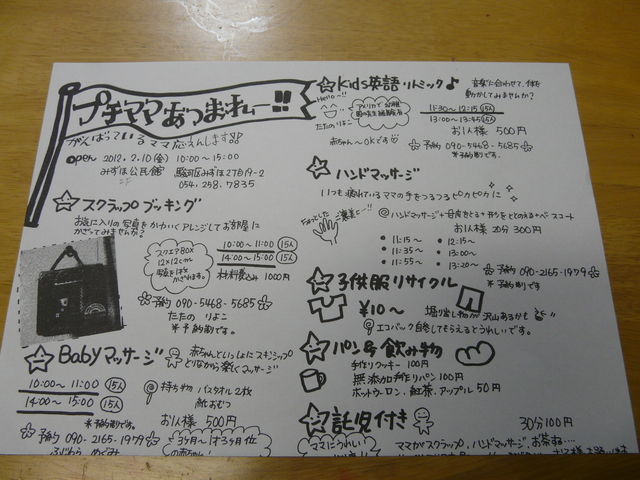 プチママあつまれー!!
がんばっているママ応えんします!!
open 2012.2.10(金) 10:00〜15:00
みずほ公民館 駿河区みずほ2丁目19-2
054.258.7835
スクラップブッキング
お気に入りの写真をかわいくアレンジしてお部屋に
かざってみませんか?
スクエアBOX
12×12cm
10:00〜11:00 15人
14:00〜15:00 15人
材料費込み 1000円
予約 090-5468-5685
ただの りょこ
*予約制です。
Babyマッサージ
赤ちゃんといっしょにスキンシップ
とりながら楽しくマッサージ
10:00〜11:00 15人
14:00〜15:00 15人
*予約制です。
持ち物 バスタオル2枚
紙おむつ
お1人様 500円
予約 090-2165-1979
ふじわら めぐみ
3ヶ月〜1才3ヶ月位
の赤ちゃん!
Kids英語リトミック♪
音楽に合わせて、体を
動かしてみませんか?
Hello〜!!
ただの りょこ
赤ちゃん〜OKです
11:30〜12:15 15人
13:00〜13:45 15人
お1人様 500円
予約 090-5468-5685
*予約制です。
ハンドマッサージ
いつも疲れているママの手をつるつるピカピカに
ちょっとした
ご褒美に…!!
お1人様 20分 300円
• 11:15〜 • 12:15〜
• 11:35〜 • 13:00〜
• 11:55〜 • 13:20〜
予約 090-2165-1979
*予約制です
子供服リサイクル
¥10〜 掘り出し物が沢山あるかも
エコバック持参してもらえるとうれしいです。
パン&飲み物
手作りクッキー 100円
無添加手作りパン 100円
ホットウーロン、紅茶、アップル 50円
託児付き
30分100円
ママにうれしい
ママがスクラップ、ハンドマッサージ、お茶ね…